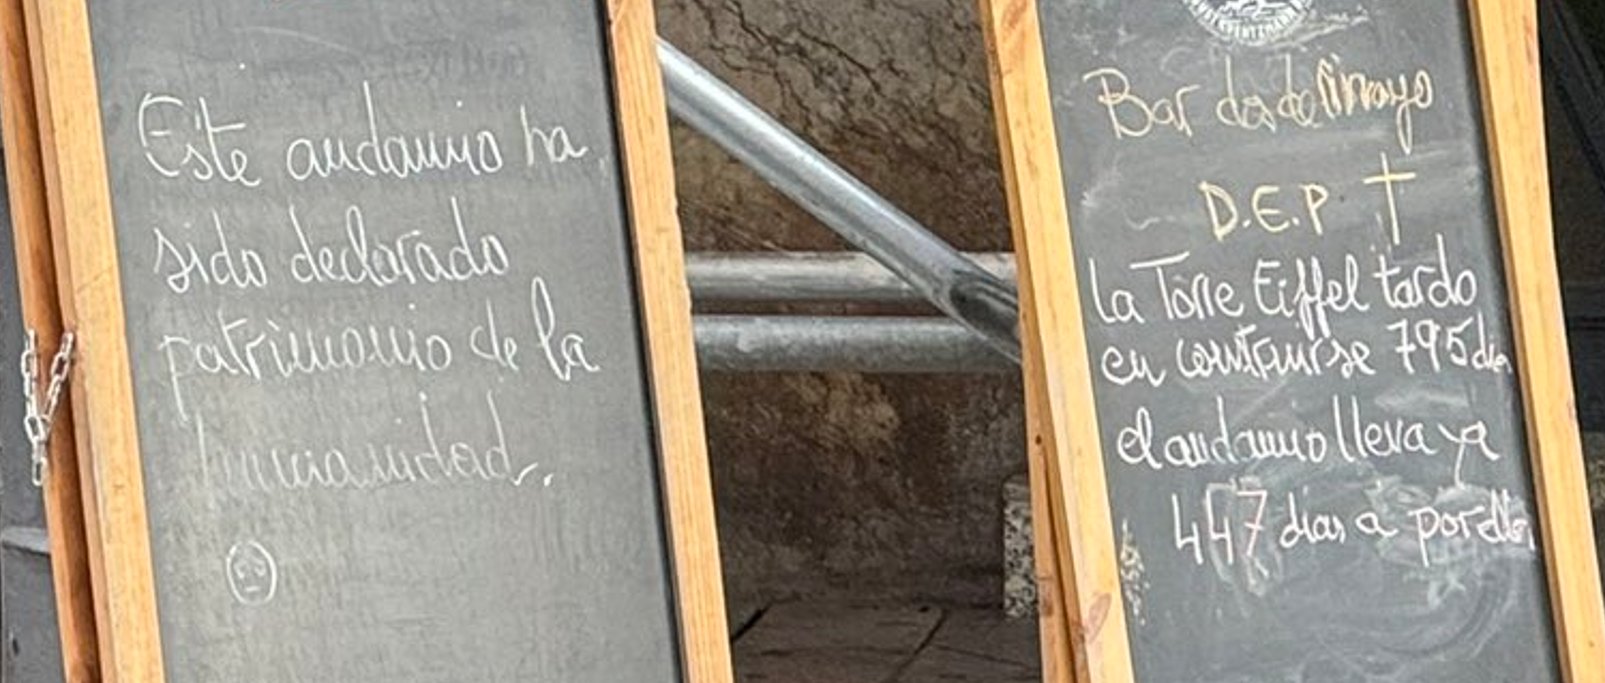 Este andamio ha
sido declarado
patrimonio de la
humanidad.
Bar desde
D.E.P
la Torre Eiffel tardo
en construirse 795 dias
el andamio lleva ya
447 dias a por ella